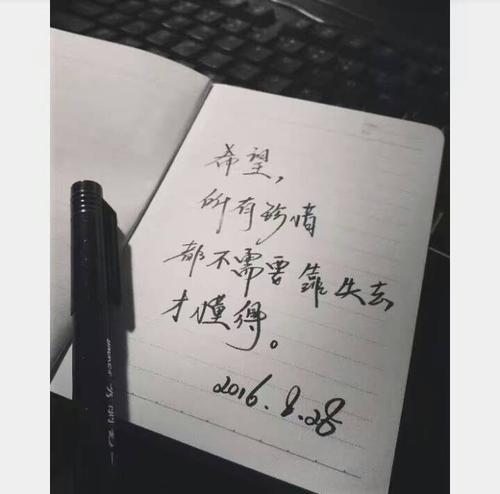 希望,
所有珍惜
都不需要靠失去
才懂得。
2016.8.28